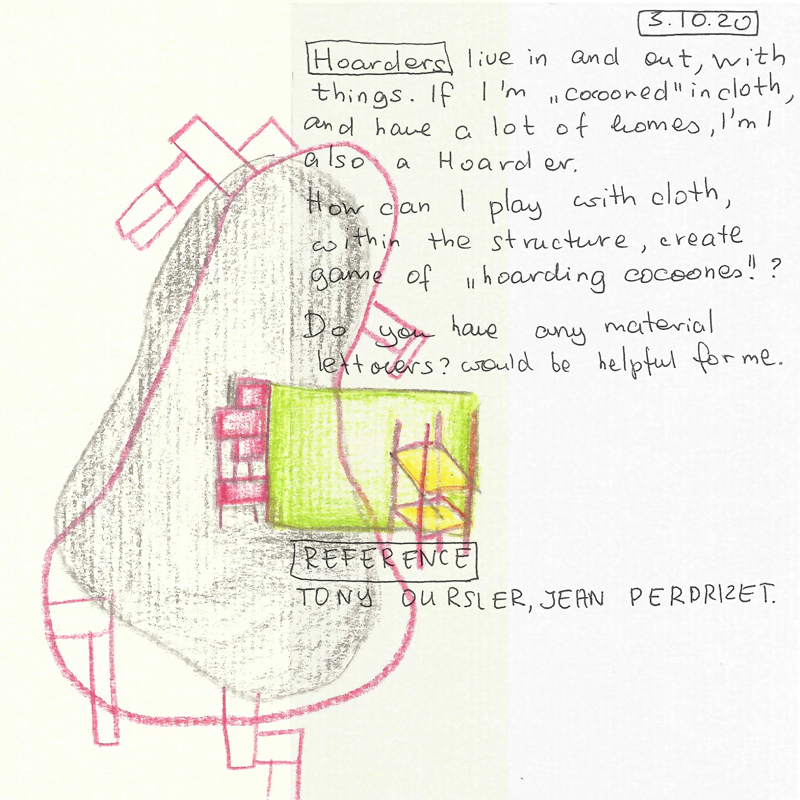 3.10.20
Hoarders live in and out, with
things. If I'm „cocooned" in cloth,
and have a lot of homes, I'm I
also a Hoarder.
How can I play with cloth,
within the structure, create
game of „hoarding cocoones!"?
Do you have any material
leftovers? would be helpful for me.
REFERENCE
TONY OURSLER, JEAN PERDRIZET.